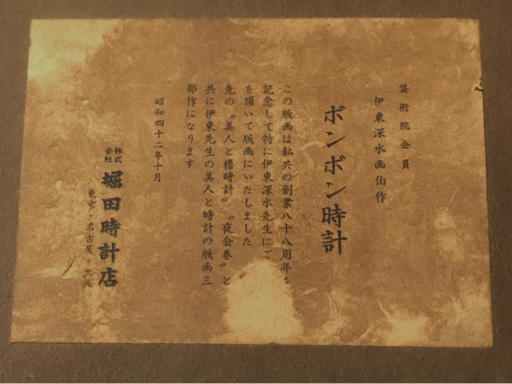 芸術院会員
伊東深水画伯作
ボンボン時計
この版画は私共の創業八十八周年を
記念して特に伊東深水先生にご
を頂いて版画にいたしました
先の〝美人と櫓時計〟〝夜会巻〟と
共に伊東先生の美人と時計の版画三
部作になります
昭和四十二年十月
株式会社 堀田時計店
東京・名古屋・大阪